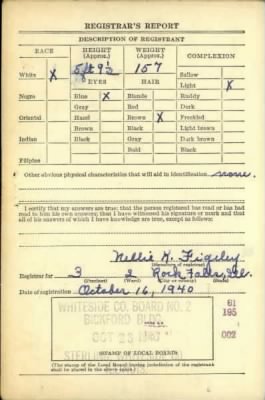 REGISTRAR'S REPORT
DESCRIPTION OF REGISTRANT
RACE HEIGHT (Approx.) WEIGHT (Approx.) COMPLEXION
5 ft 9½ 157
White X EYES HAIR Sallow
Light X
Negro Blue X Blonde Ruddy
Gray Red Dark
Oriental Hazel Brown X Freckled
Brown Black Light brown
Indian Black Gray Dark brown
Bald Black
Filipino
Other obvious physical characteristics that will aid in identification none.
I certify that my answers are true; that the person registered has read or has had
read to him his own answers; that I have witnessed his signature or mark and that
all of his answers of which I have knowledge are true, except as follows:
Nellie
(Signature of registrar)
Registrar for 3 2 Rock Falls, Ill.
(Precinct) (Ward) (City or county) (State)
Date of registration October 16, 1940
WHITESIDE CO. BOARD NO. 2
BICKFORD BLDG.
OCT 23 1940
61
195
002
(STAMP OF LOCAL BOARD)
(The stamp of the Local Board having jurisdiction of the registrant
shall be placed in the above space.)